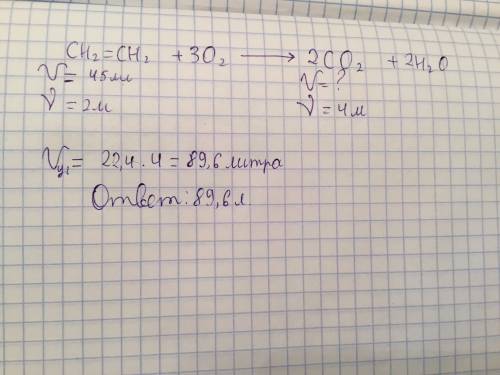 CH₂=CH₂ + 3O₂ ⟶ 2CO₂ + 2H₂O
V = 45мл V = ?
ν = 2м ν = 4м
V = 22,4 · 4 = 89,6 литра
Ответ: 89,6 л